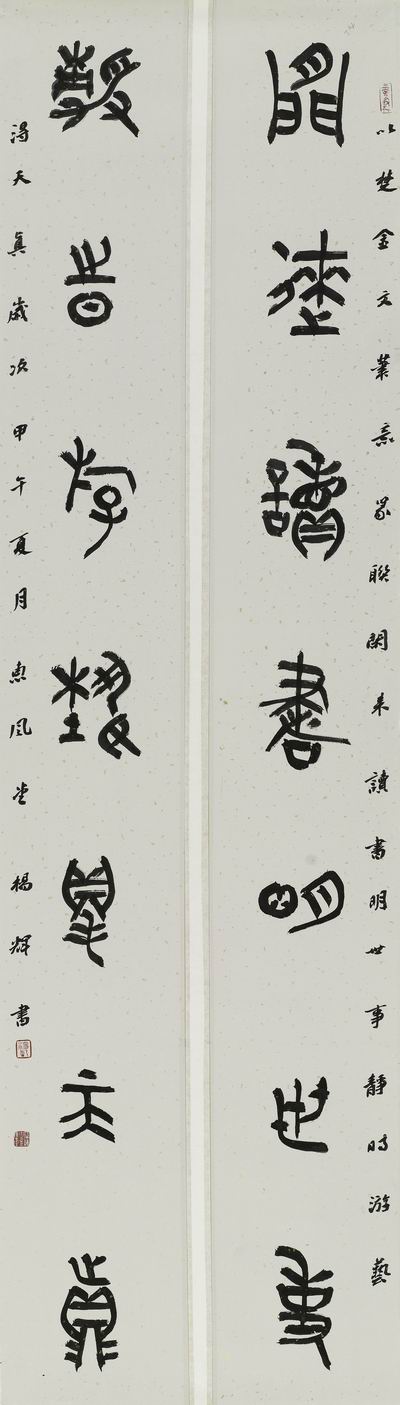 以楚金文筆意為聯閑來讀書明世事靜時游藝
閒來讀書明世事
靜時游藝得天真
得天真歲次甲午夏月惠風堂楊輝書